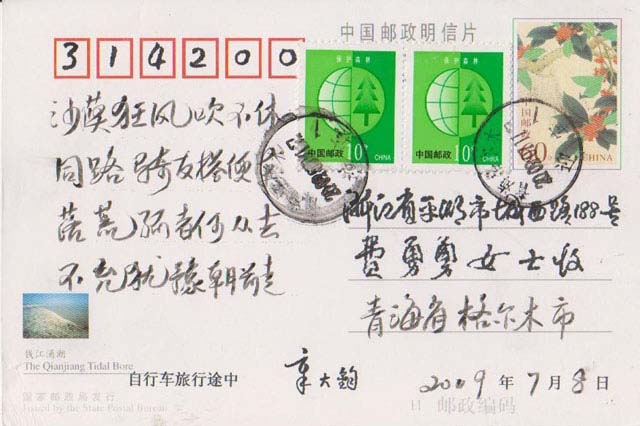 中国邮政明信片
314200
保护森林
保护森林
中国邮政 10分
CHINA
中国邮政 10分
CHINA
中国邮政
60分
CHINA
沙莫狂风吹不休
同路骑友搭便
不允犹豫朝前走
浙江省平湖市城西路188号
费勇勇女士收
青海省格尔木市
钱江涌潮
The Qianjiang Tidal Bore
自行车旅行途中
章大钧
2009年7月8日
国家邮政局发行
Issued by the State Postal Bureau
邮政编码